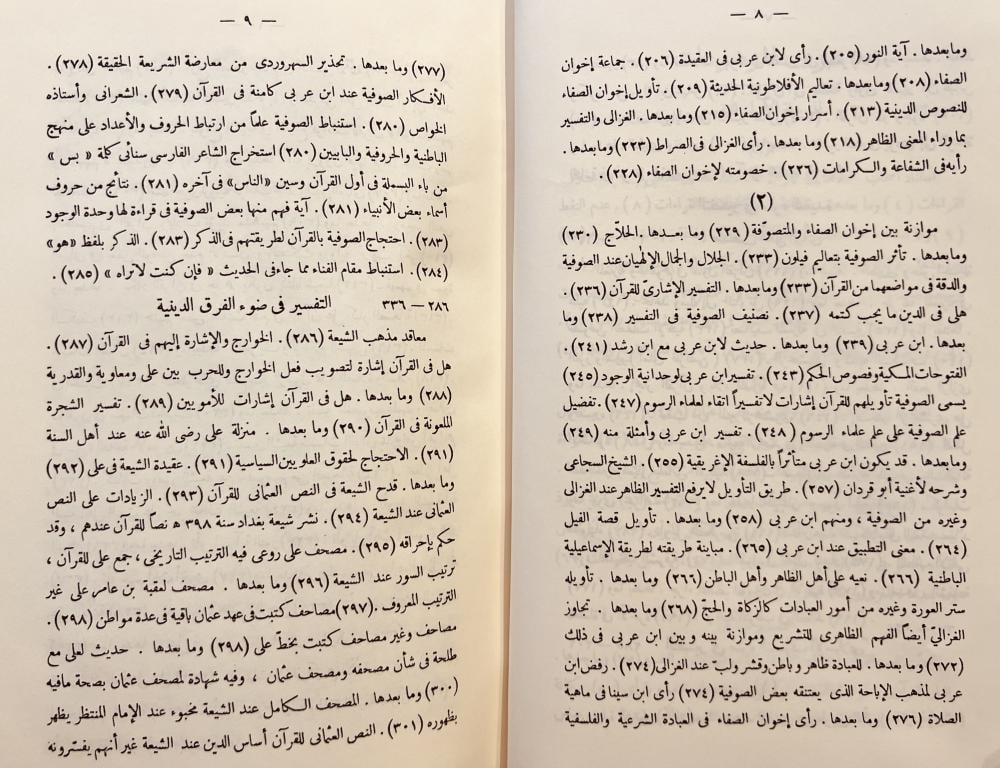 — ٨ —
وما بعدها . آية النور (٢٠٥) . رأى لابن عربى فى العقيدة (٢٠٦) . جماعة إخوان
الصفاء (٢٠٨) وما بعدها . تعاليم الأفلاطونية الحديثة (٢٠٩) . تأويل إخوان الصفاء
للنصوص الدينية (٢١٣) . أسرار إخوان الصفاء (٢١٥) وما بعدها . الغزالى والتفسير
بما وراء المعنى الظاهر (٢١٨) وما بعدها . رأى الغزالى فى الصراط (٢٢٣) وما بعدها .
رأيه فى الشفاعة والكرامات (٢٢٦) . خصومته لإخوان الصفاء (٢٢٨) .
(٢)
موازنة بين إخوان الصفاء والمتصوّفة (٢٢٩) وما بعدها . الحلاّج (٢٣٠)
وما بعدها . تأثر الصوفية بتعاليم فيلون (٢٣٣) . الجلال والجمال الإلهيان عند الصوفية
والدقة فى مواضعهما من القرآن (٢٣٣) وما بعدها . التفسير الإشارىّ للقرآن (٢٣٦) .
هل فى الدين ما يجب كتمه (٢٣٧) . تصنيف الصوفية فى التفسير (٢٣٨) وما
بعدها . ابن عربى (٢٣٩) وما بعدها . حديث لابن عربى مع ابن رشد (٢٤١) .
الفتوحات المكية وفصوص الحكم (٢٤٣) . تفسير ابن عربى لوحدانية الوجود (٢٤٥)
يسمى الصوفية تأويلهم للقرآن إشارات لا تفسيراً اتقاء لعلماء الرسوم (٢٤٧) . تفضيل
علم الصوفية على علم علماء الرسوم (٢٤٨) . تفسير ابن عربى وأمثلة منه (٢٤٩)
وما بعدها . قد يكون ابن عربى متأثراً بالفلسفة الإغريقية (٢٥٥) . الشيخ السجاعى
وشرحه لأغنية أبو قردان (٢٥٧) . طريق التأويل لا يرفع التفسير الظاهر عند الغزالى
وغيره من الصوفية ، ومنهم ابن عربى (٢٥٨) وما بعدها . تأويل قصة الفيل
(٢٦٤) . معنى التطبيق عند ابن عربى (٢٦٥) . مباينة طريقته لطريقة الإسماعيلية
الباطنية (٢٦٦) . نعيه على أهل الظاهر وأهل الباطن (٢٦٦) وما بعدها . تأويله
ستر العورة وغيره من أمور العبادات كالزكاة والحجّ (٢٦٨) وما بعدها . تجاوز
الغزالىّ أيضاً الفهم الظاهرى للتشريع وموازنة بينه وبين ابن عربى فى ذلك
(٢٧٢) وما بعدها . للعبادة ظاهر وباطن وقشر ولب عند الغزالى (٢٧٤) . رفض ابن
عربى لمذهب الإباحة الذى يعتنقه بعض الصوفية (٢٧٤) رأى ابن سينا فى ماهية
الصلاة (٢٧٦) وما بعدها . رأى إخوان الصفاء فى العبادة الشرعية والفلسفية
— ٩ —
(٢٧٧) وما بعدها . تحذير السهروردى من معارضة الشريعة الحقيقة (٢٧٨) .
الأفكار الصوفية عند ابن عربى كامنة فى القرآن (٢٧٩) . الشعرانى وأستاذه
الخواص (٢٨٠) . استنباط الصوفية علماً من ارتباط الحروف والأعداد على منهج
الباطنية والحروفية والبابيين (٢٨٠) استخراج الشاعر الفارسى سنائى كلمة « بس »
من باء البسملة فى أول القرآن وسين «الناس» فى آخره (٢٨١) . نتائج من حروف
أسماء بعض الأنبياء (٢٨١) . آية فهم منها بعض الصوفية فى قراءة لها وحدة الوجود
(٢٨٣) . احتجاج الصوفية بالقرآن لطريقتهم فى الذكر (٢٨٣) . الذكر بلفظ «هو»
(٢٨٤) . استنباط مقام الفناء مما جاء فى الحديث « فإن كنت لا تراه » (٢٨٥) .
التفسير فى ضوء الفرق الدينية ٢٨٦ — ٣٣٦
معاقد مذهب الشيعة (٢٨٦) . الخوارج والإشارة إليهم فى القرآن (٢٨٧) .
هل فى القرآن إشارة لتصويب فعل الخوارج وللحرب بين على ومعاوية والقدرية
(٢٨٨) وما بعدها . هل فى القرآن إشارات للأمويين (٢٨٩) . تفسير الشجرة
الملعونة فى القرآن (٢٩٠) وما بعدها . منزلة على رضى الله عنه عند أهل السنة
(٢٩١) . الاحتجاج لحقوق العلويين السياسية (٢٩١) . عقيدة الشيعة فى على (٢٩٢)
وما بعدها . قدح الشيعة فى النص العثمانى للقرآن (٢٩٣) . الزيادات على النص
العثمانى عند الشيعة (٢٩٤) . نشر شيعة بغداد سنة ٣٩٨ ه نصاً للقرآن عندهم ، وقد
حكم بإحراقه (٢٩٥) . مصحف على روعى فيه الترتيب التاريخى ، جمع على للقرآن ،
ترتيب السور عند الشيعة (٢٩٦) وما بعدها . مصحف لعقبة بن عامر على غير
الترتيب المعروف . (٢٩٧) مصاحف كتبت فى عهد عثمان باقية فى عدة مواطن (٢٩٨) .
مصاحف وغير مصاحف كتبت بخطّ على (٢٩٨) وما بعدها . حديث لعلى مع
طلحة فى شأن مصحفه ومصحف عثمان ، وفيه شهادة لمصحف عثمان بصحة ما فيه
(٣٠٠) وما بعدها . المصحف الكامل عند الشيعة مخبوء عند الإمام المنتظر يظهر
بظهوره (٣٠١) . النص العثمانى للقرآن أساس الدين عند الشيعة غير أنهم يفسرونه